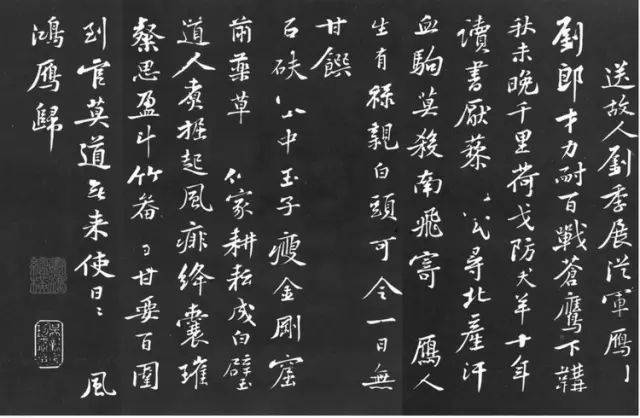 送故人劉季展從軍鴈
劉郎才力耐百戰蒼鷹下韝
秋未晚千里荷戈防犬羊十年
讀書厭藜尋北產汗
血駒莫殺南飛寄鴈人
生有祿親白頭可令一日無
甘饌
石中玉子瘦金剛窟
前藥草家耕耘成白璧
道人煮掘起風痱絳囊璀
璨思盈斗竹畚甘要百圍
到官莫道無來使日日風
鴻鴈歸